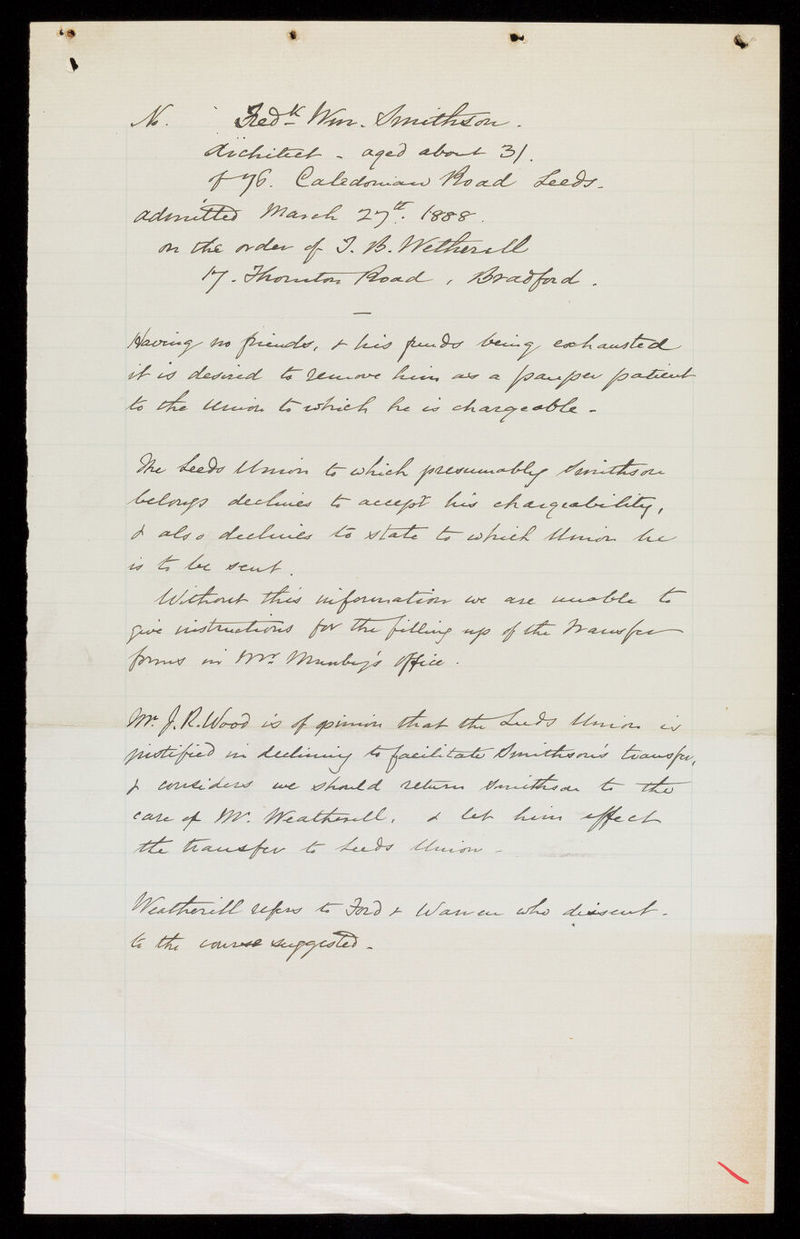 No. Fredk Wm. Smithson.
Architect - aged about 31.
of 76. Caledonian Road Leeds.
admitted March 27th. 1888.
on the order of J. B. Wetherill
17. Thornton Road, Bradford.
Having no friends, & his funds being exhausted
it is desired to remove him as a pauper patient
to the Union to which he is chargeable -
The Leeds Union to which presumably Smithson
belongs declines to accept his chargeability,
& also declines to state to which Union he
is to be sent.
Without this information we are unable to
give instructions for the filling up of the Transfer
forms in Mr. Munby's office.
Mr. J. R. Wood is of opinion that the Leeds Union is
justified in declining to facilitate Smithson's transfer,
& considers we should return Smithson to the
care of Mr. Weatherill, & let him effect
the transfer to Leeds Union -
Weatherill refers to Ford & Warren who dissent -
to the course suggested -